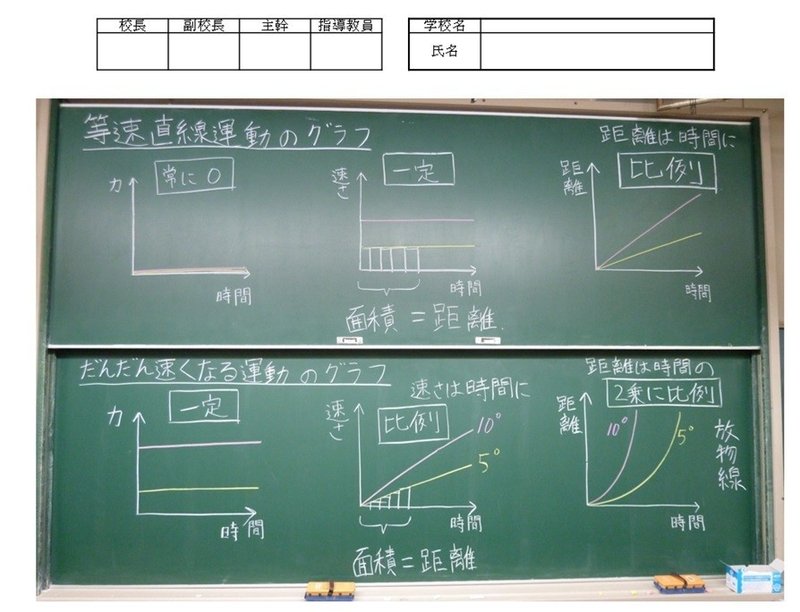 校長 副校長 主幹 指導教員
学校名
氏名
等速直線運動のグラフ
力
常に0
時間
速さ
一定
時間
面積=距離.
距離は時間に
比例
距離
時間
だんだん速くなる運動のグラフ
力
一定
時間
速さは時間に
比例
速さ
10°
5°
時間
面積=距離
距離は時間の
2乗に比例
距離
10°
5°
放物線
時間